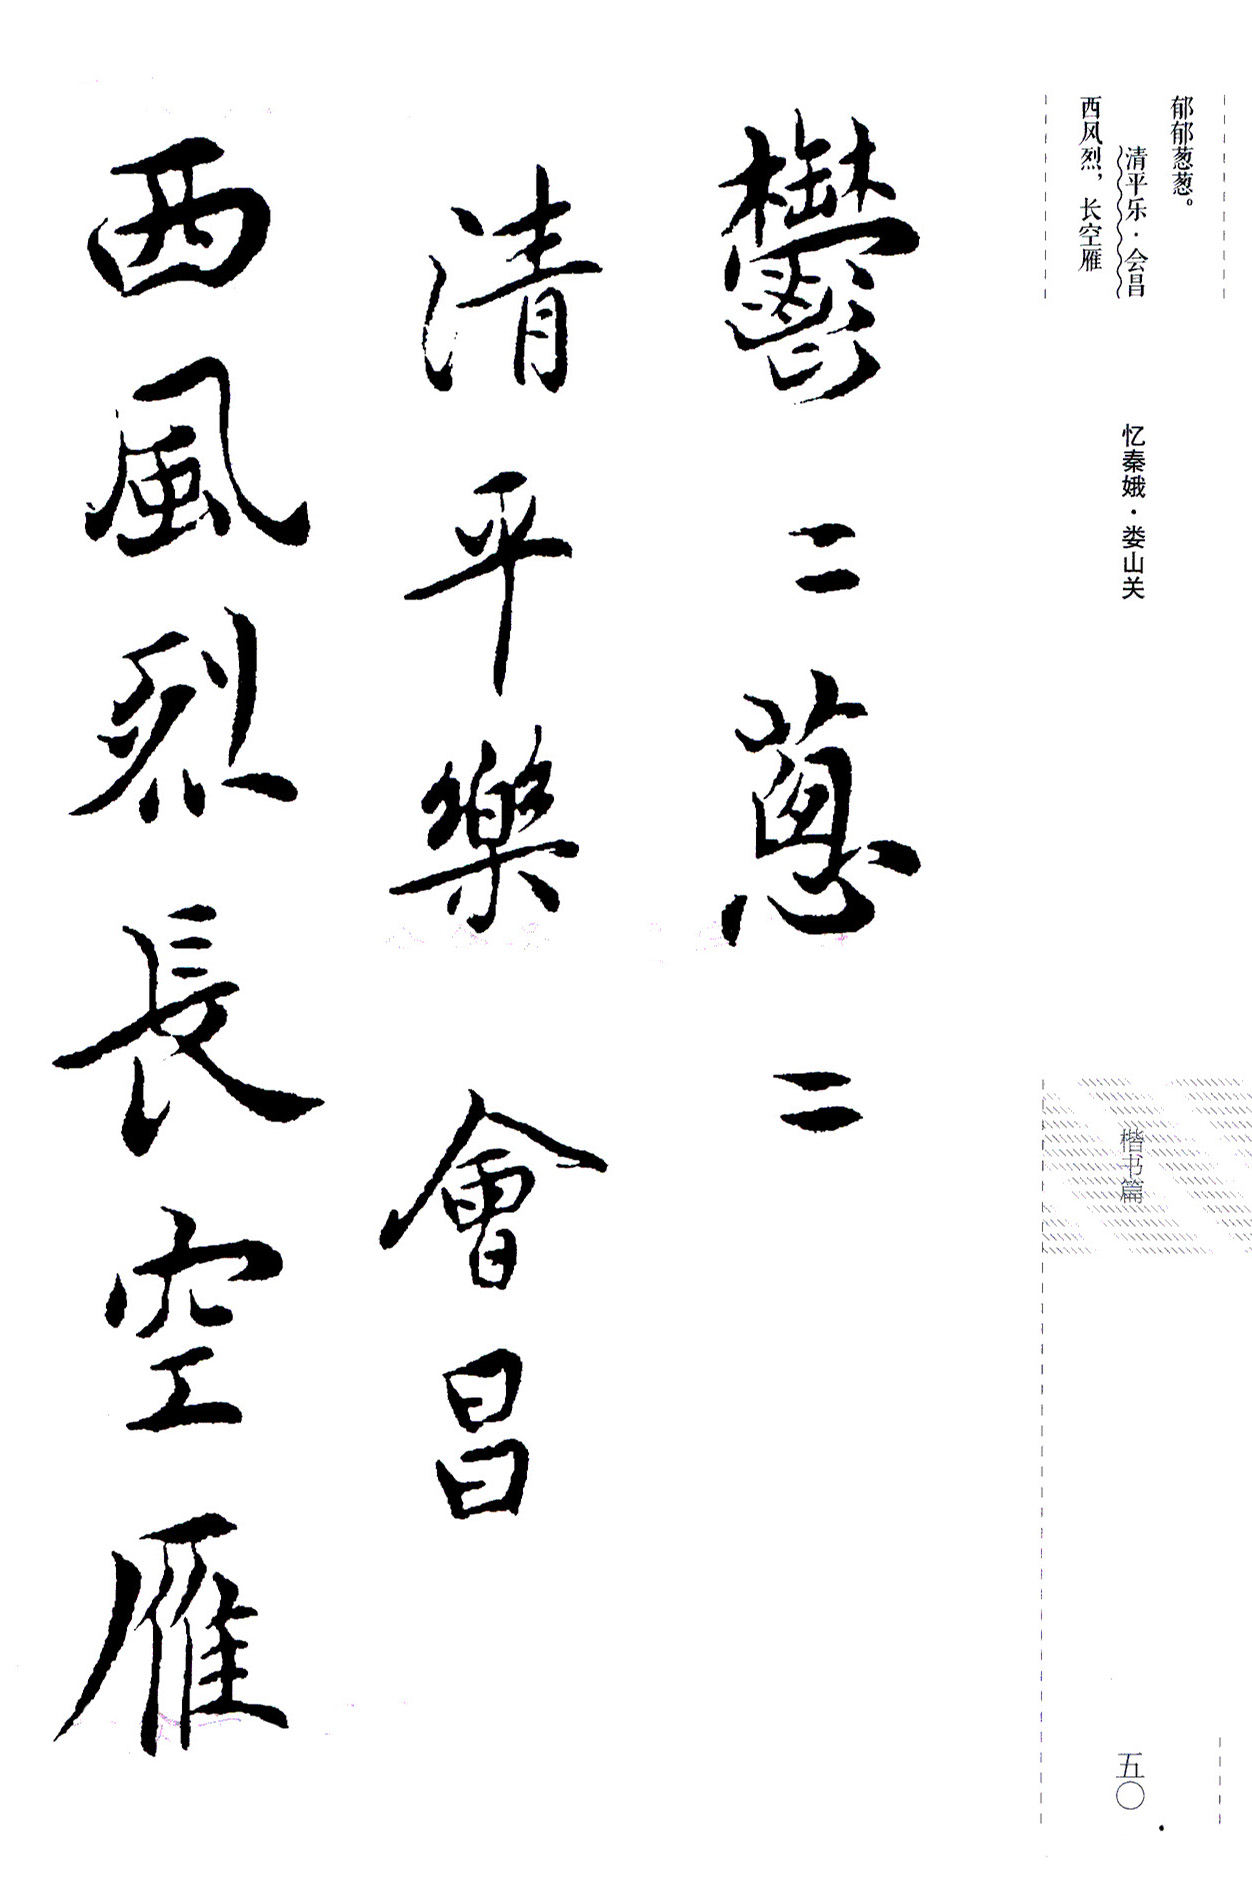 郁郁葱葱。
清平乐·会昌
西风烈，长空雁
忆秦娥·娄山关
楷书篇
五〇
鬱〻蔥〻
清平樂 會昌
西風烈長空雁